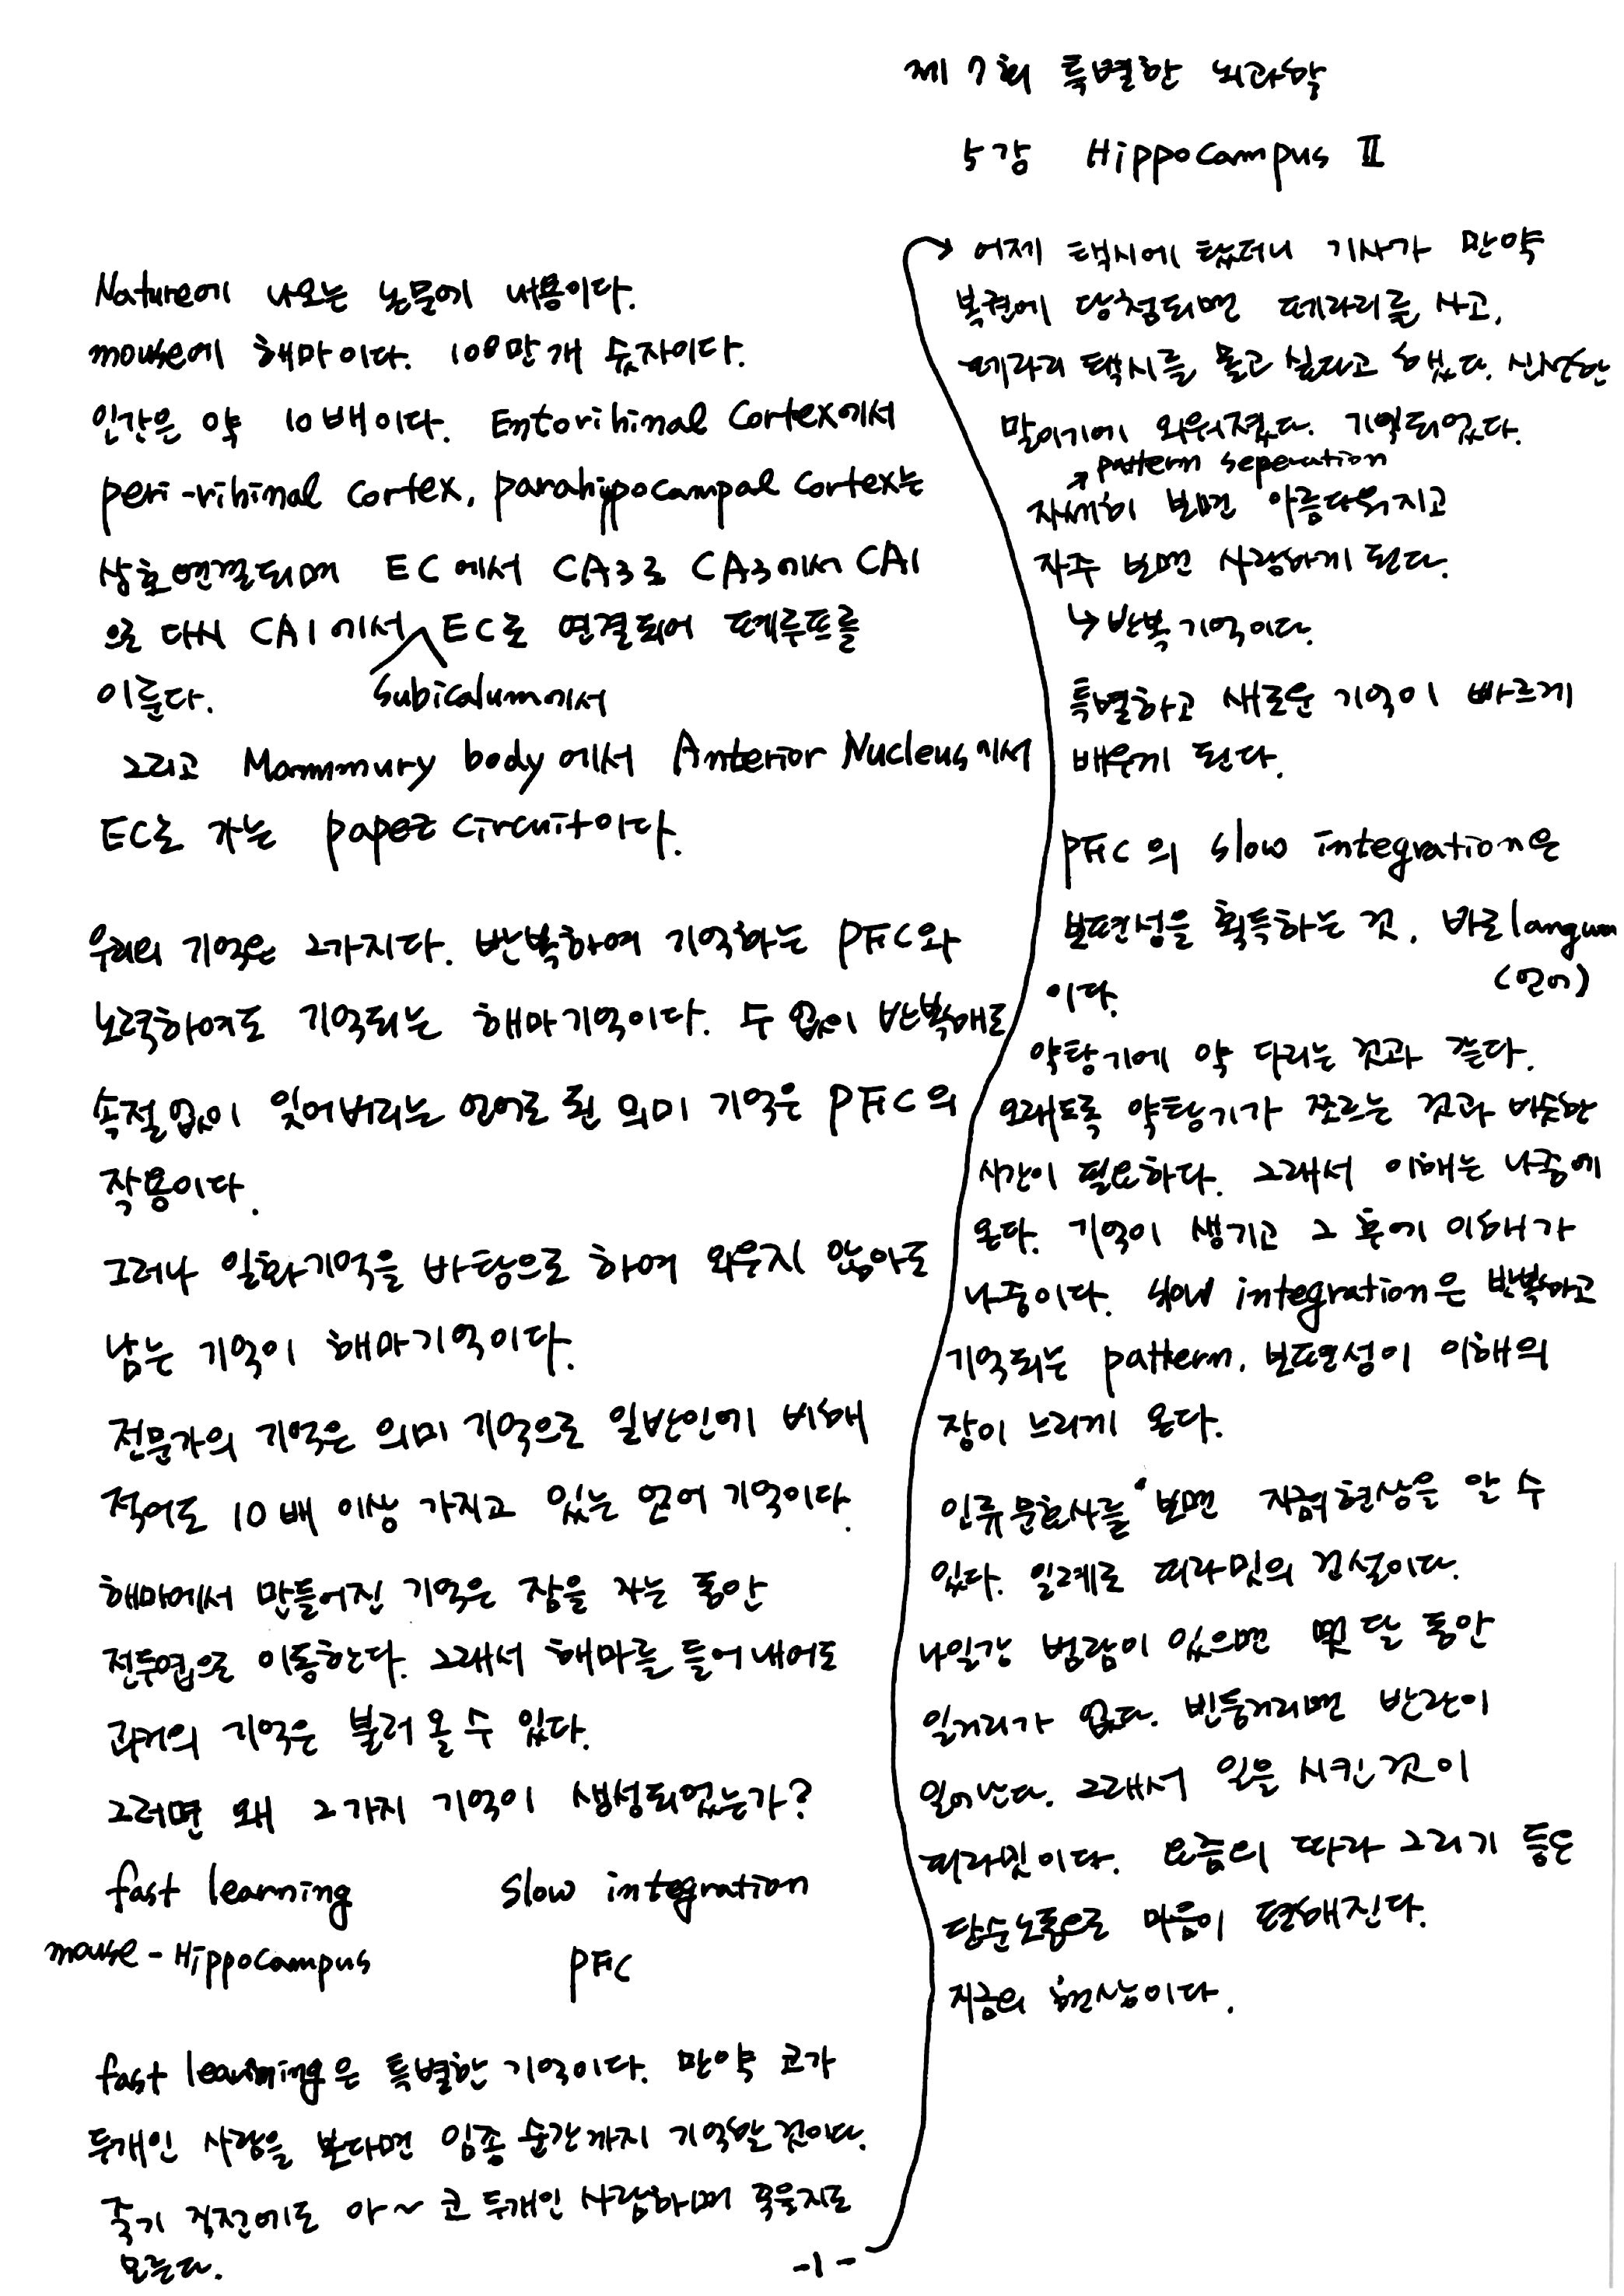 제 7회 특별한 뇌과학
5강 Hippocampus II
Nature에 나오는 논문에 내용이다.
mouse에 해마이다. 100만개 숫자이다.
인간은 약 10배이다. Entorihinal Cortex에서
peri-rihinal cortex, parahippocampal cortex는
상호연결되며 EC에서 CA3로 CA3에서 CA1
으로 다시 CA1에서 EC로 연결되어 폐루프를
subicalum에서
이룬다.
그리고 Mammury body에서 Anterior Nucleus에서
EC로 가는 papez circuit이다.
우리의 기억은 2가지다. 반복하여 기억하는 PFC와
노력하여도 기억되는 해마기억이다. 수 없이 반복해도
속절없이 잊어버리는 언어로 된 의미 기억은 PFC의
작용이다.
그러나 일화기억을 바탕으로 하여 외우지 않아도
남는 기억이 해마기억이다.
전문가의 기억은 의미 기억으로 일반인에 비해
적어도 10배 이상 가지고 있는 언어 기억이다.
해마에서 만들어진 기억은 잠을 자는 동안
전두엽으로 이동한다. 그래서 해마를 들어내어도
과거의 기억은 불러 올 수 있다.
그러면 왜 2가지 기억이 생성되었는가?
fast learning slow integration
mouse - Hippocampus PFC
fast learning은 특별한 기억이다. 만약 코가
두개인 사람을 본다면 임종 순간까지 기억할 것이다.
죽기 직전에도 아~ 코 두개인 사람하며 죽을지도
모른다.
-1-
어제 택시에 탔더니 기사가 만약
복권에 당첨되면 페라리를 사고,
페라리 택시를 몰고 싶다고 했다. 신선한
말이기에 외워졌다. 기억되었다.
pattern seperation
자세히 보면 아름다워지고
자주 보면 사랑하게 된다.
↳ 반복기억이다.
특별하고 새로운 기억이 빠르게
배우게 된다.
PFC의 slow integration은
보편성을 획득하는 것, 바로 langua
(언어)
이다.
약탕기에 약 다리는 것과 같다.
오래도록 약탕기가 쪼르는 것과 비슷한
시간이 필요하다. 그래서 이해는 나중에
온다. 기억이 생기고 그 후에 이해가
나중이다. slow integration은 반복하고
기억되는 pattern, 보편성이 이해의
장이 느리게 온다.
인류문화사를 보면 지금의 현상을 알 수
있다. 일례로 피라밋의 건설이다.
나일강 범람이 있으면 몇 달 동안
일거리가 없다. 빈둥거리면 반란이
일어난다. 그래서 일을 시킨 것이
피라밋이다. 요즘의 따라 그리기 등은
단순노동으로 마음이 편해진다.
지금의 현상이다.